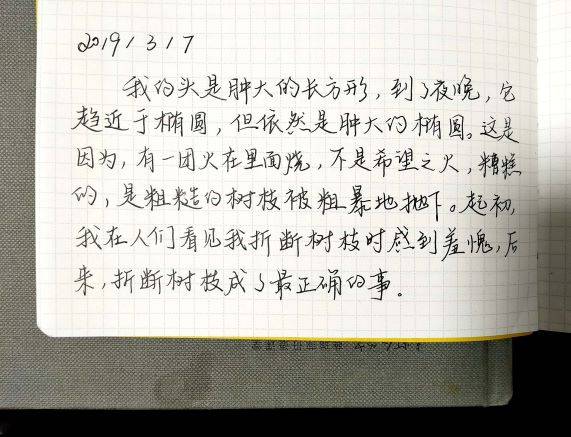 2019/3/17
我的头是肿大的长方形，到了夜晚，它
趋近于椭圆，但依然是肿大的椭圆。这是
因为，有一团火在里面烧，不是希望之火，糟糕
的，是粗糙的树枝被粗暴地抛下。起初，
我在人们看见我折断树枝时感到羞愧，后
来，折断树枝成了最正确的事。